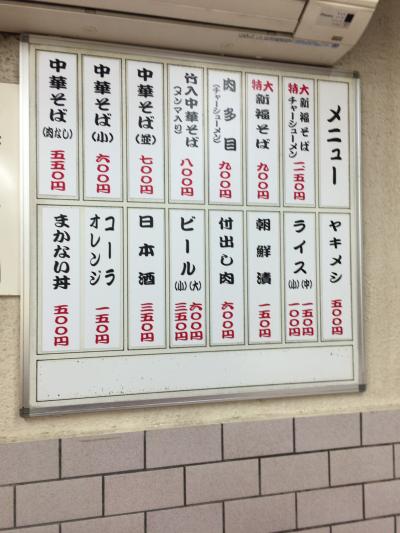 メニュー
特大新福そば
チャーシューメン
一二五〇円
特大新福そば
九〇〇円
肉多目
(チャーシューメン)
九〇〇円
竹入中華そば
(メンマ入り)
八〇〇円
中華そば(並)
七〇〇円
中華そば(小)
六〇〇円
中華そば(肉なし)
五五〇円
ヤキメシ
五〇〇円
ライス(中)一五〇円
(小)一〇〇円
朝鮮漬
一五〇円
付出し肉
六〇〇円
ビール(大)六〇〇円
(小)三五〇円
日本酒
三五〇円
コーラ
オレンジ
一五〇円
まかない丼
五〇〇円